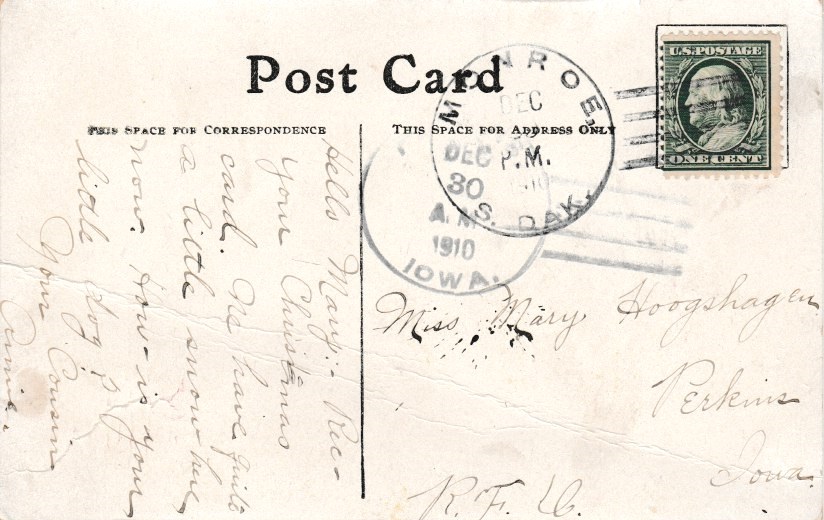 Post Card
THIS SPACE FOR CORRESPONDENCE
THIS SPACE FOR ADDRESS ONLY
U.S. POSTAGE
ONE CENT
MONROE,
DEC
P.M.
1910
S. DAK.
DEC
30
A.M
1910
IOWA.
Hello Mary:- Rec-
your Christmas
card. We have quite
a little snow here
now. How is your
little dog?
Your Cousin
Annie.
Miss Mary Hoogshagen
Perkins
Iowa.
R. F. D.